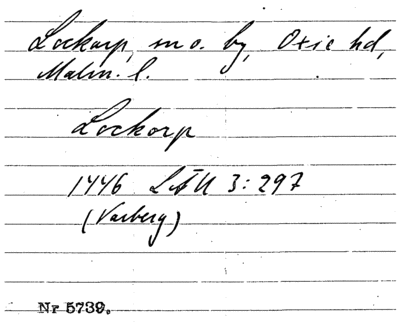 Lockarp, sn o. by, Oxie hd,
Malm. l.
Lockorp
1446 LÄU 3:297
(Varberg)
Nr 5739.